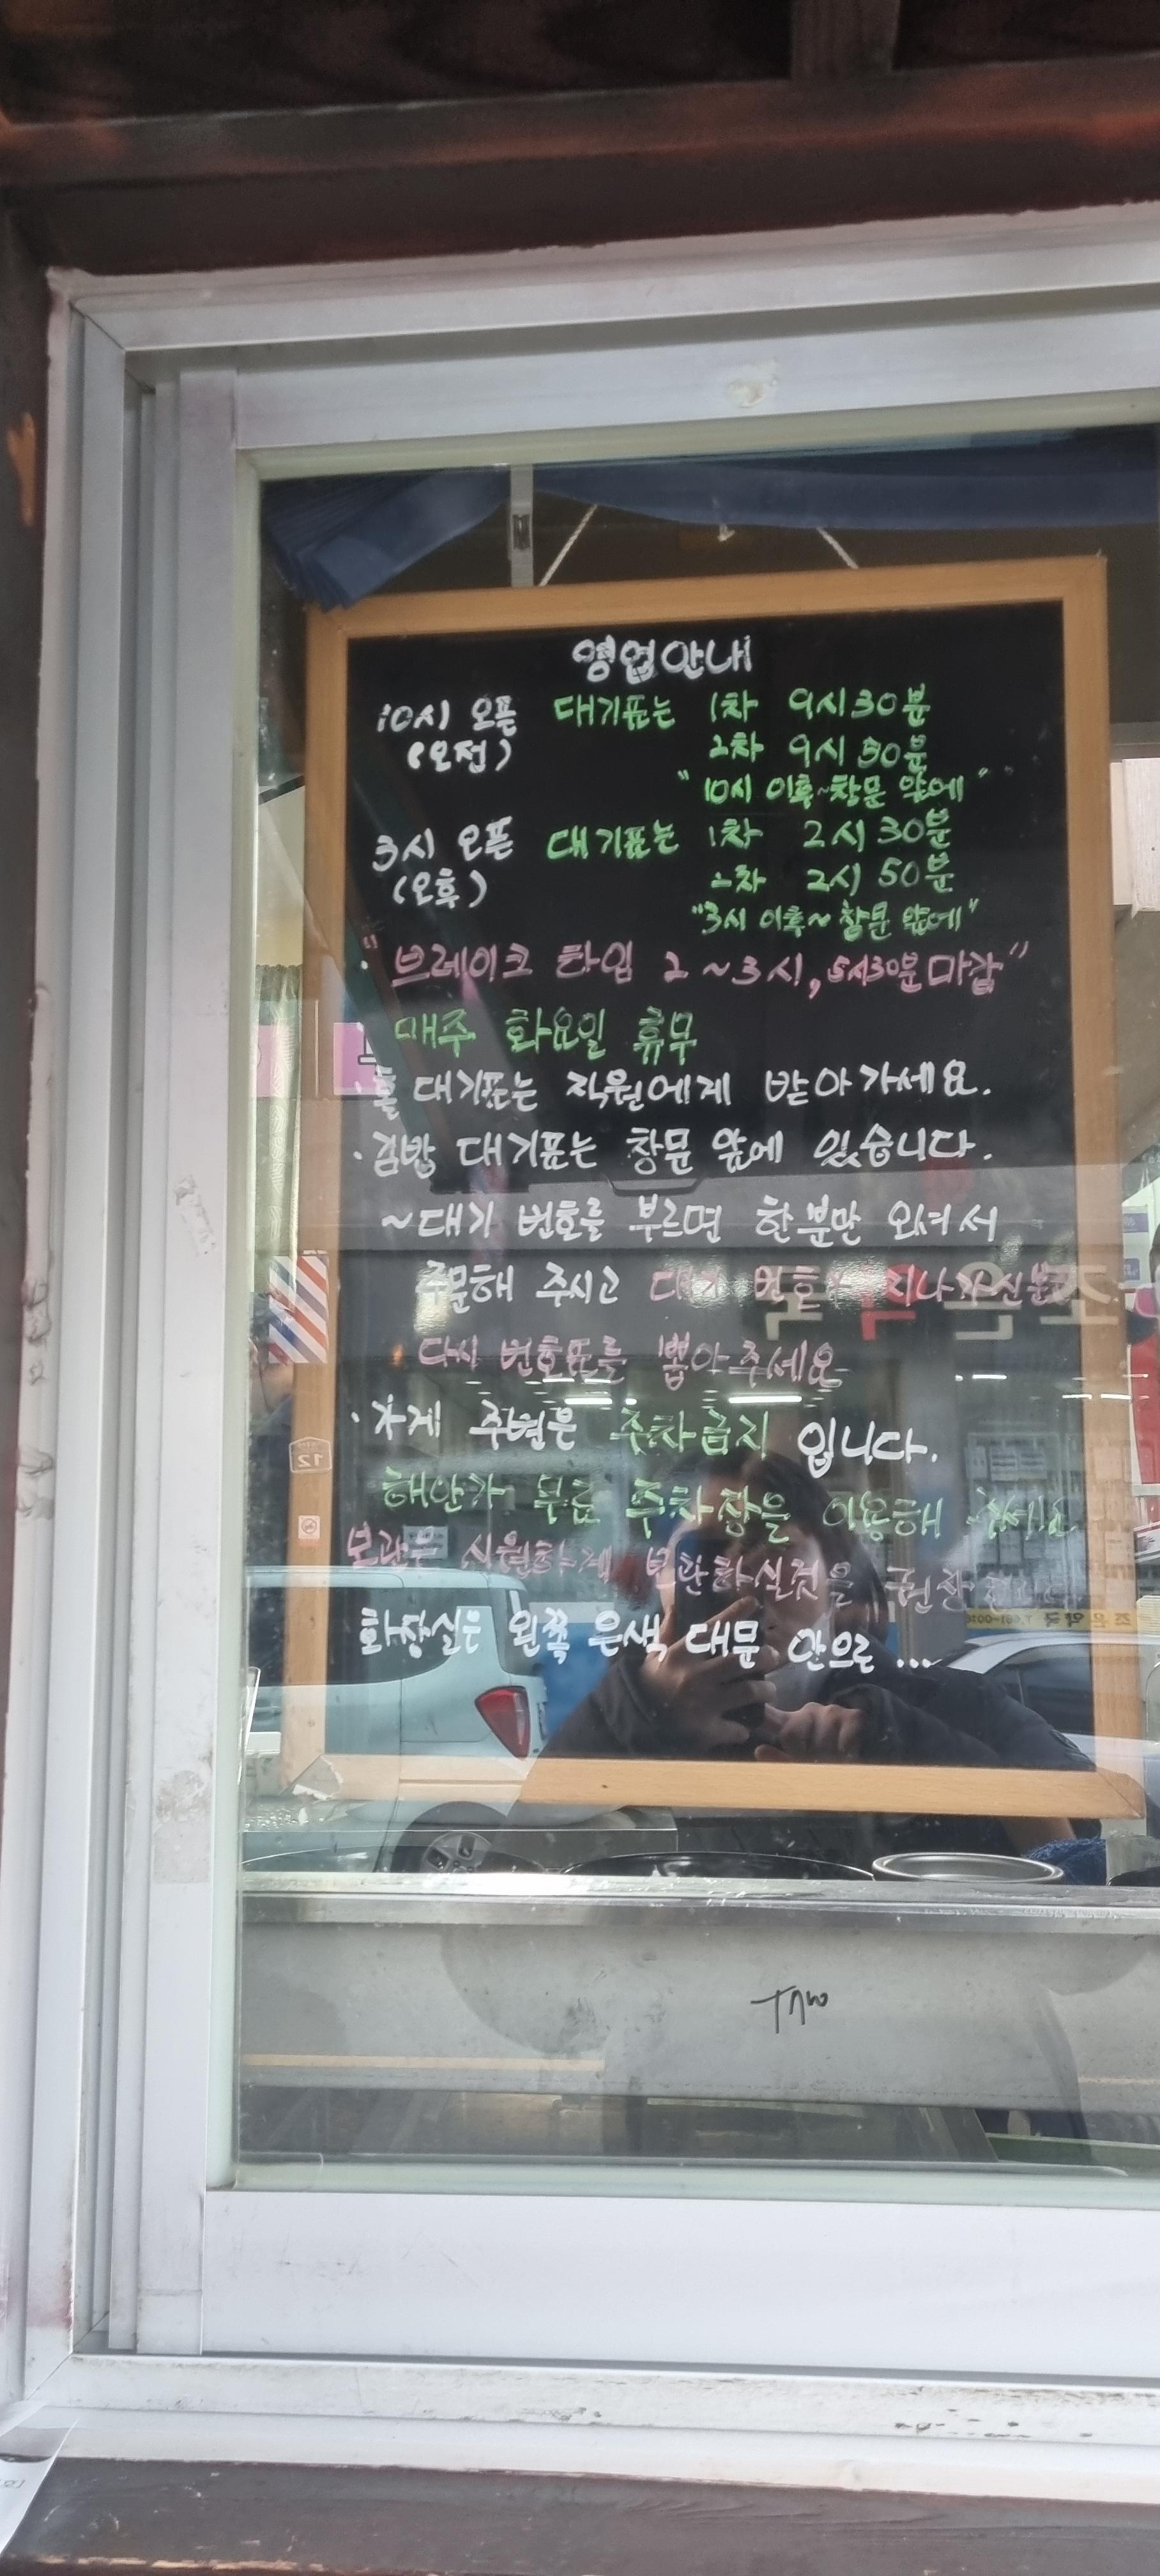 영업안내
10시 오픈 대기표는 1차 9시30분
(오전) 2차 9시 50분
"10시 이후~창문 앞에"
3시 오픈 대기표는 1차 2시 30분
(오후) 2차 2시 50분
"3시 이후~창문 앞에"
"브레이크 타임 2~3시, 5시30분마감"
매주 화요일 휴무
·홀 대기표는 직원에게 받아가세요.
·김밥 대기표는 창문 앞에 있습니다.
~대기 번호를 부르면 한분만 오셔서
주문해 주시고 대기 번호가 지나가신분은
다시 번호표를 뽑아주세요
·가게 주변은 주차금지 입니다.
해안가 무료 주차장을 이용해 주세요
보관은 시원하게 보관하실것을 권장
화장실은 왼쪽 은색 대문 안으로...
조은약국
12